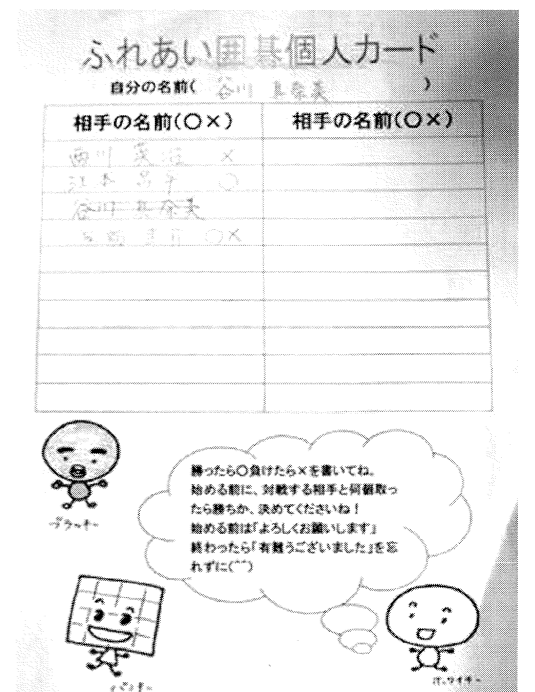 ふれあい囲碁個人カード
自分の名前( 谷川 真奈美 )
相手の名前(○×) 相手の名前(○×)
西川 ×
江本 昌平 ○
谷川 真奈美
○×
勝ったら○負けたら×を書いてね。
始める前に、対戦する相手と何個取っ
たら勝ちか、決めてくださいね！
始める前は「よろしくお願いします」
終わったら「有難うございました」を忘
れずに(^^)
ブラッキー